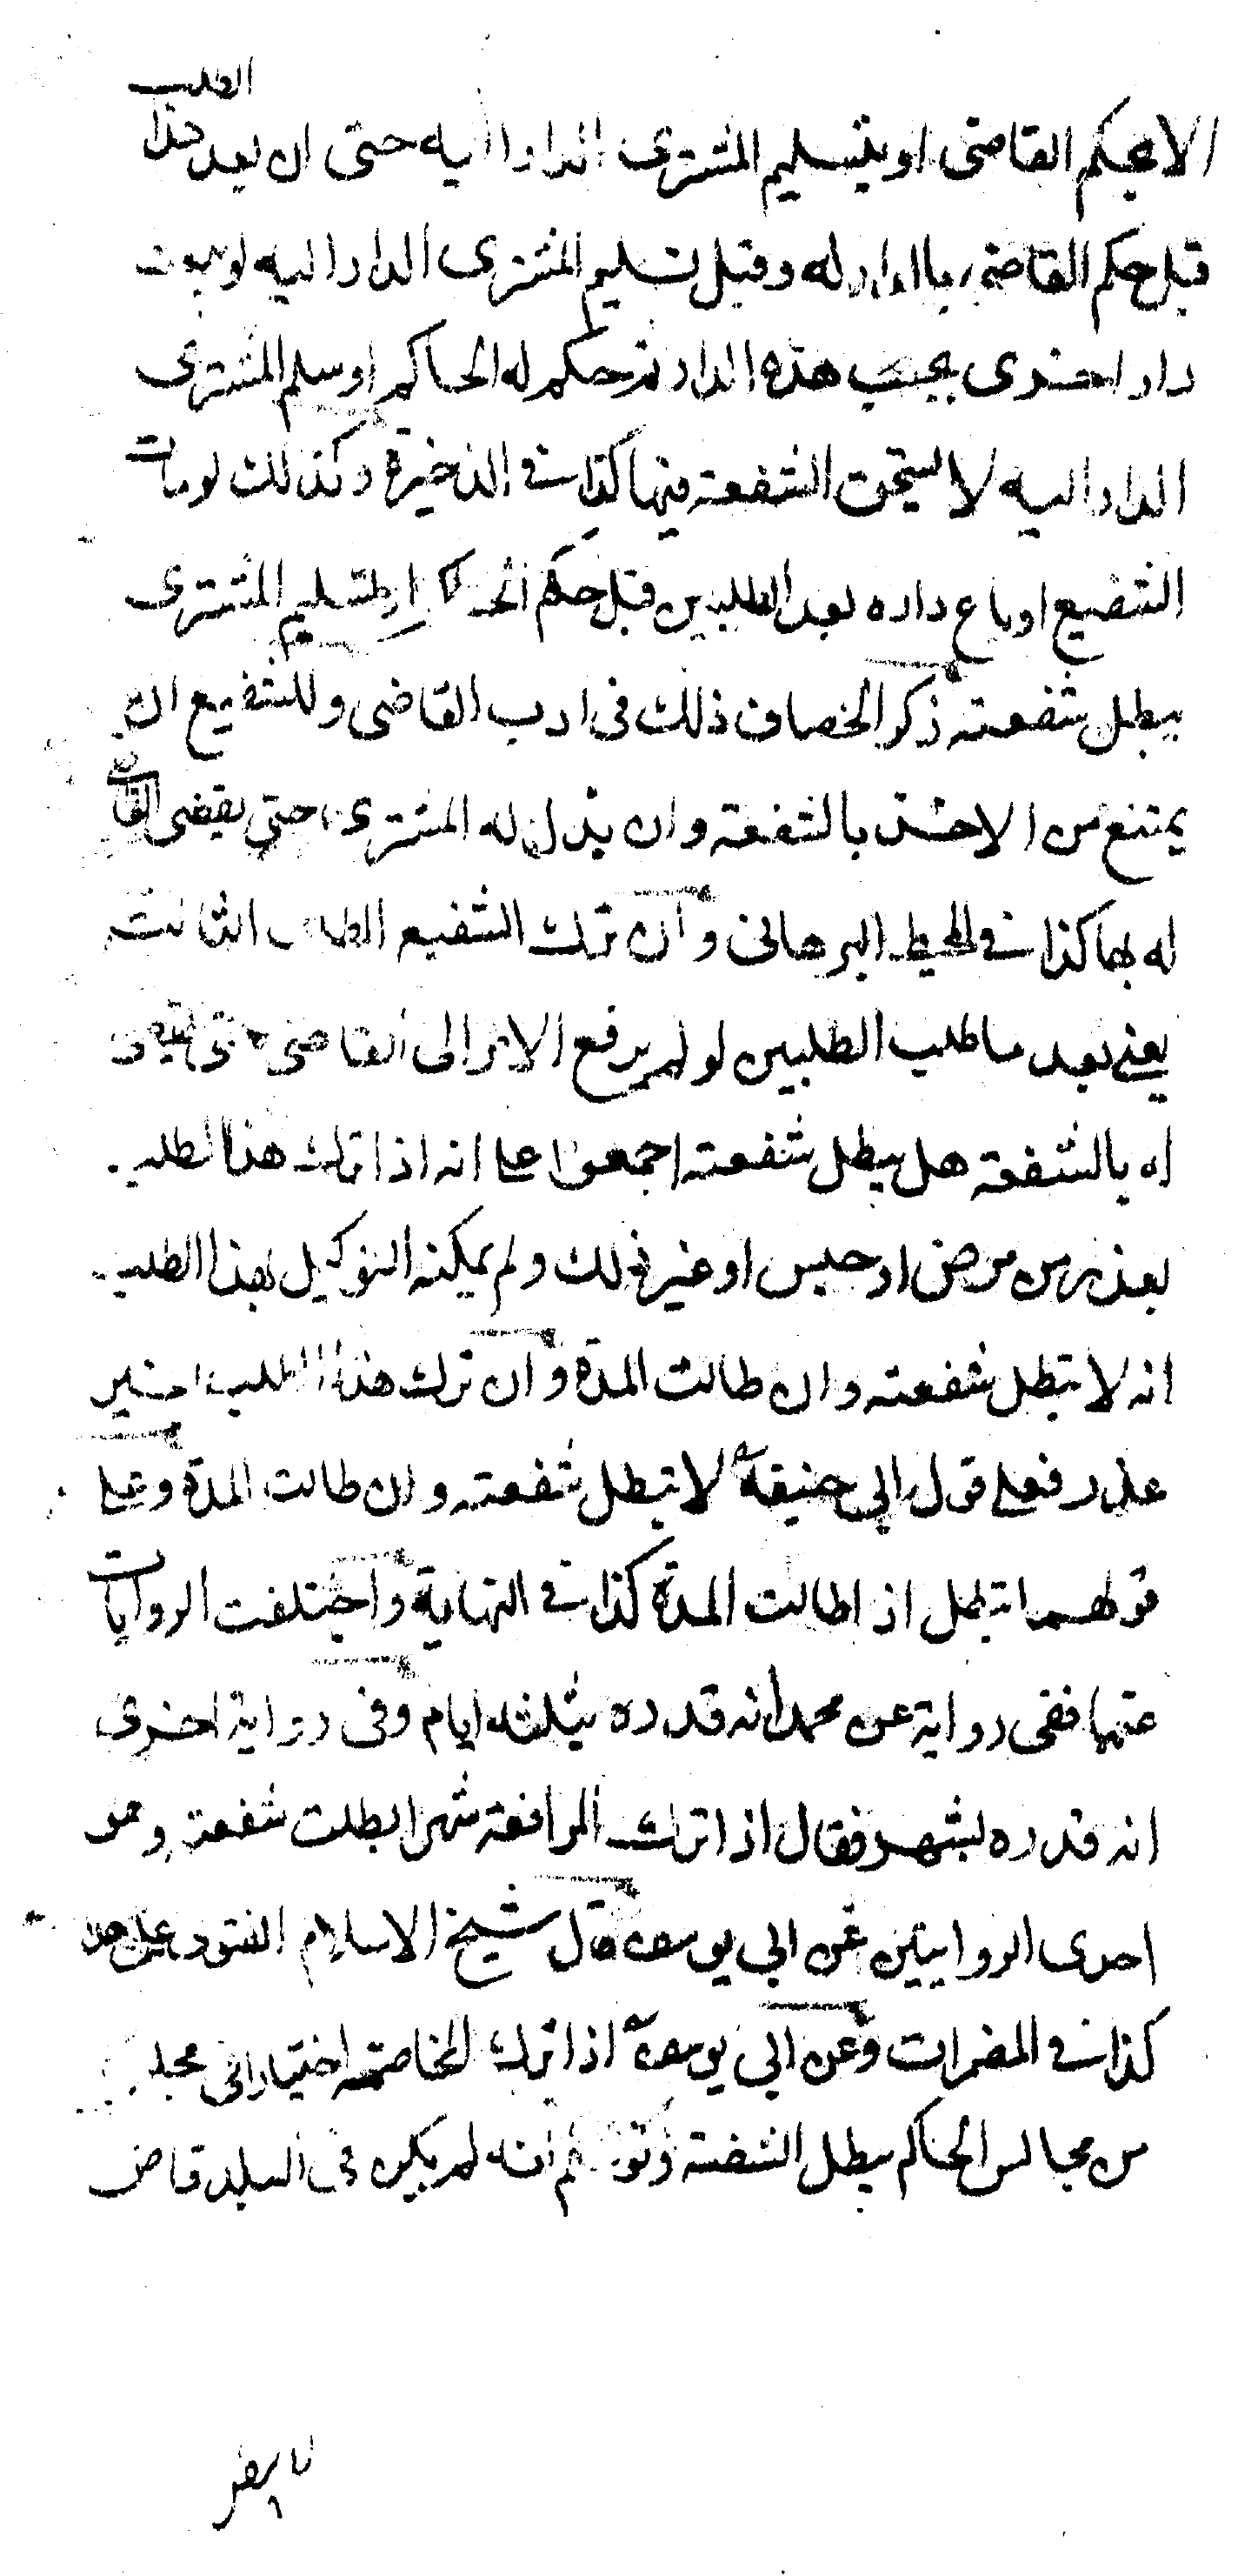 الا بحكم القاضى او بتسليم المشترى الدار اليه حتى ان بعد هذا الطلب
قبل حكم القاضى بالدار له وقبل تسليم المشترى الدار اليه لو بيعت
دار اخرى بجنب هذه الدار ثم حكم له الحاكم او سلم المشترى
الدار اليه لا يستحق الشفعة فيها كذا فى الذخيرة وكذلك لو مات
الشفيع او باع داره بعد الطلبين قبل حكم الحاكم او تسليم المشترى
يبطل شفعته ذكر الخصاف ذلك فى ادب القاضى وللشفيع ان
يمتنع من الاخذ بالشفعة وان بذل له المشترى حتى يقضى القاضى
له بها كذا فى المحيط البرهانى وان ترك الشفيع الطلب الثالث
يعنى بعد ما طلب الطلبين لو لم يرفع الامر الى القاضى حتى يقضى
له بالشفعة هل يبطل شفعته اجمعوا على انه اذا ترك هذا الطلب
بعذر من مرض او حبس او غير ذلك ولم يمكنه التوكيل بهذا الطلب
انه لا تبطل شفعته وان طالت المدة وان ترك هذا الطلب بغير
عذر فعلى قول ابى حنيفة لا تبطل شفعته وان طالت المدة وعلى
قولهما تبطل اذا طالت المدة كذا فى النهاية واختلفت الروايات
عنهما ففى رواية عن محمد انه قدره بثلثة ايام وفى رواية اخرى
انه قدره بشهر فقال اذا ترك المرافعة شهرا بطلت شفعته وهو
احدى الروايتين عن ابى يوسف قال شيخ الاسلام الفتوى على هذا
كذا فى المضمرات وعن ابى يوسف اذا ترك المخاصمة اختيارا فى مجلس
من مجالس الحاكم يبطل الشفعة ولو علم انه لم يكن فى البلد قاض